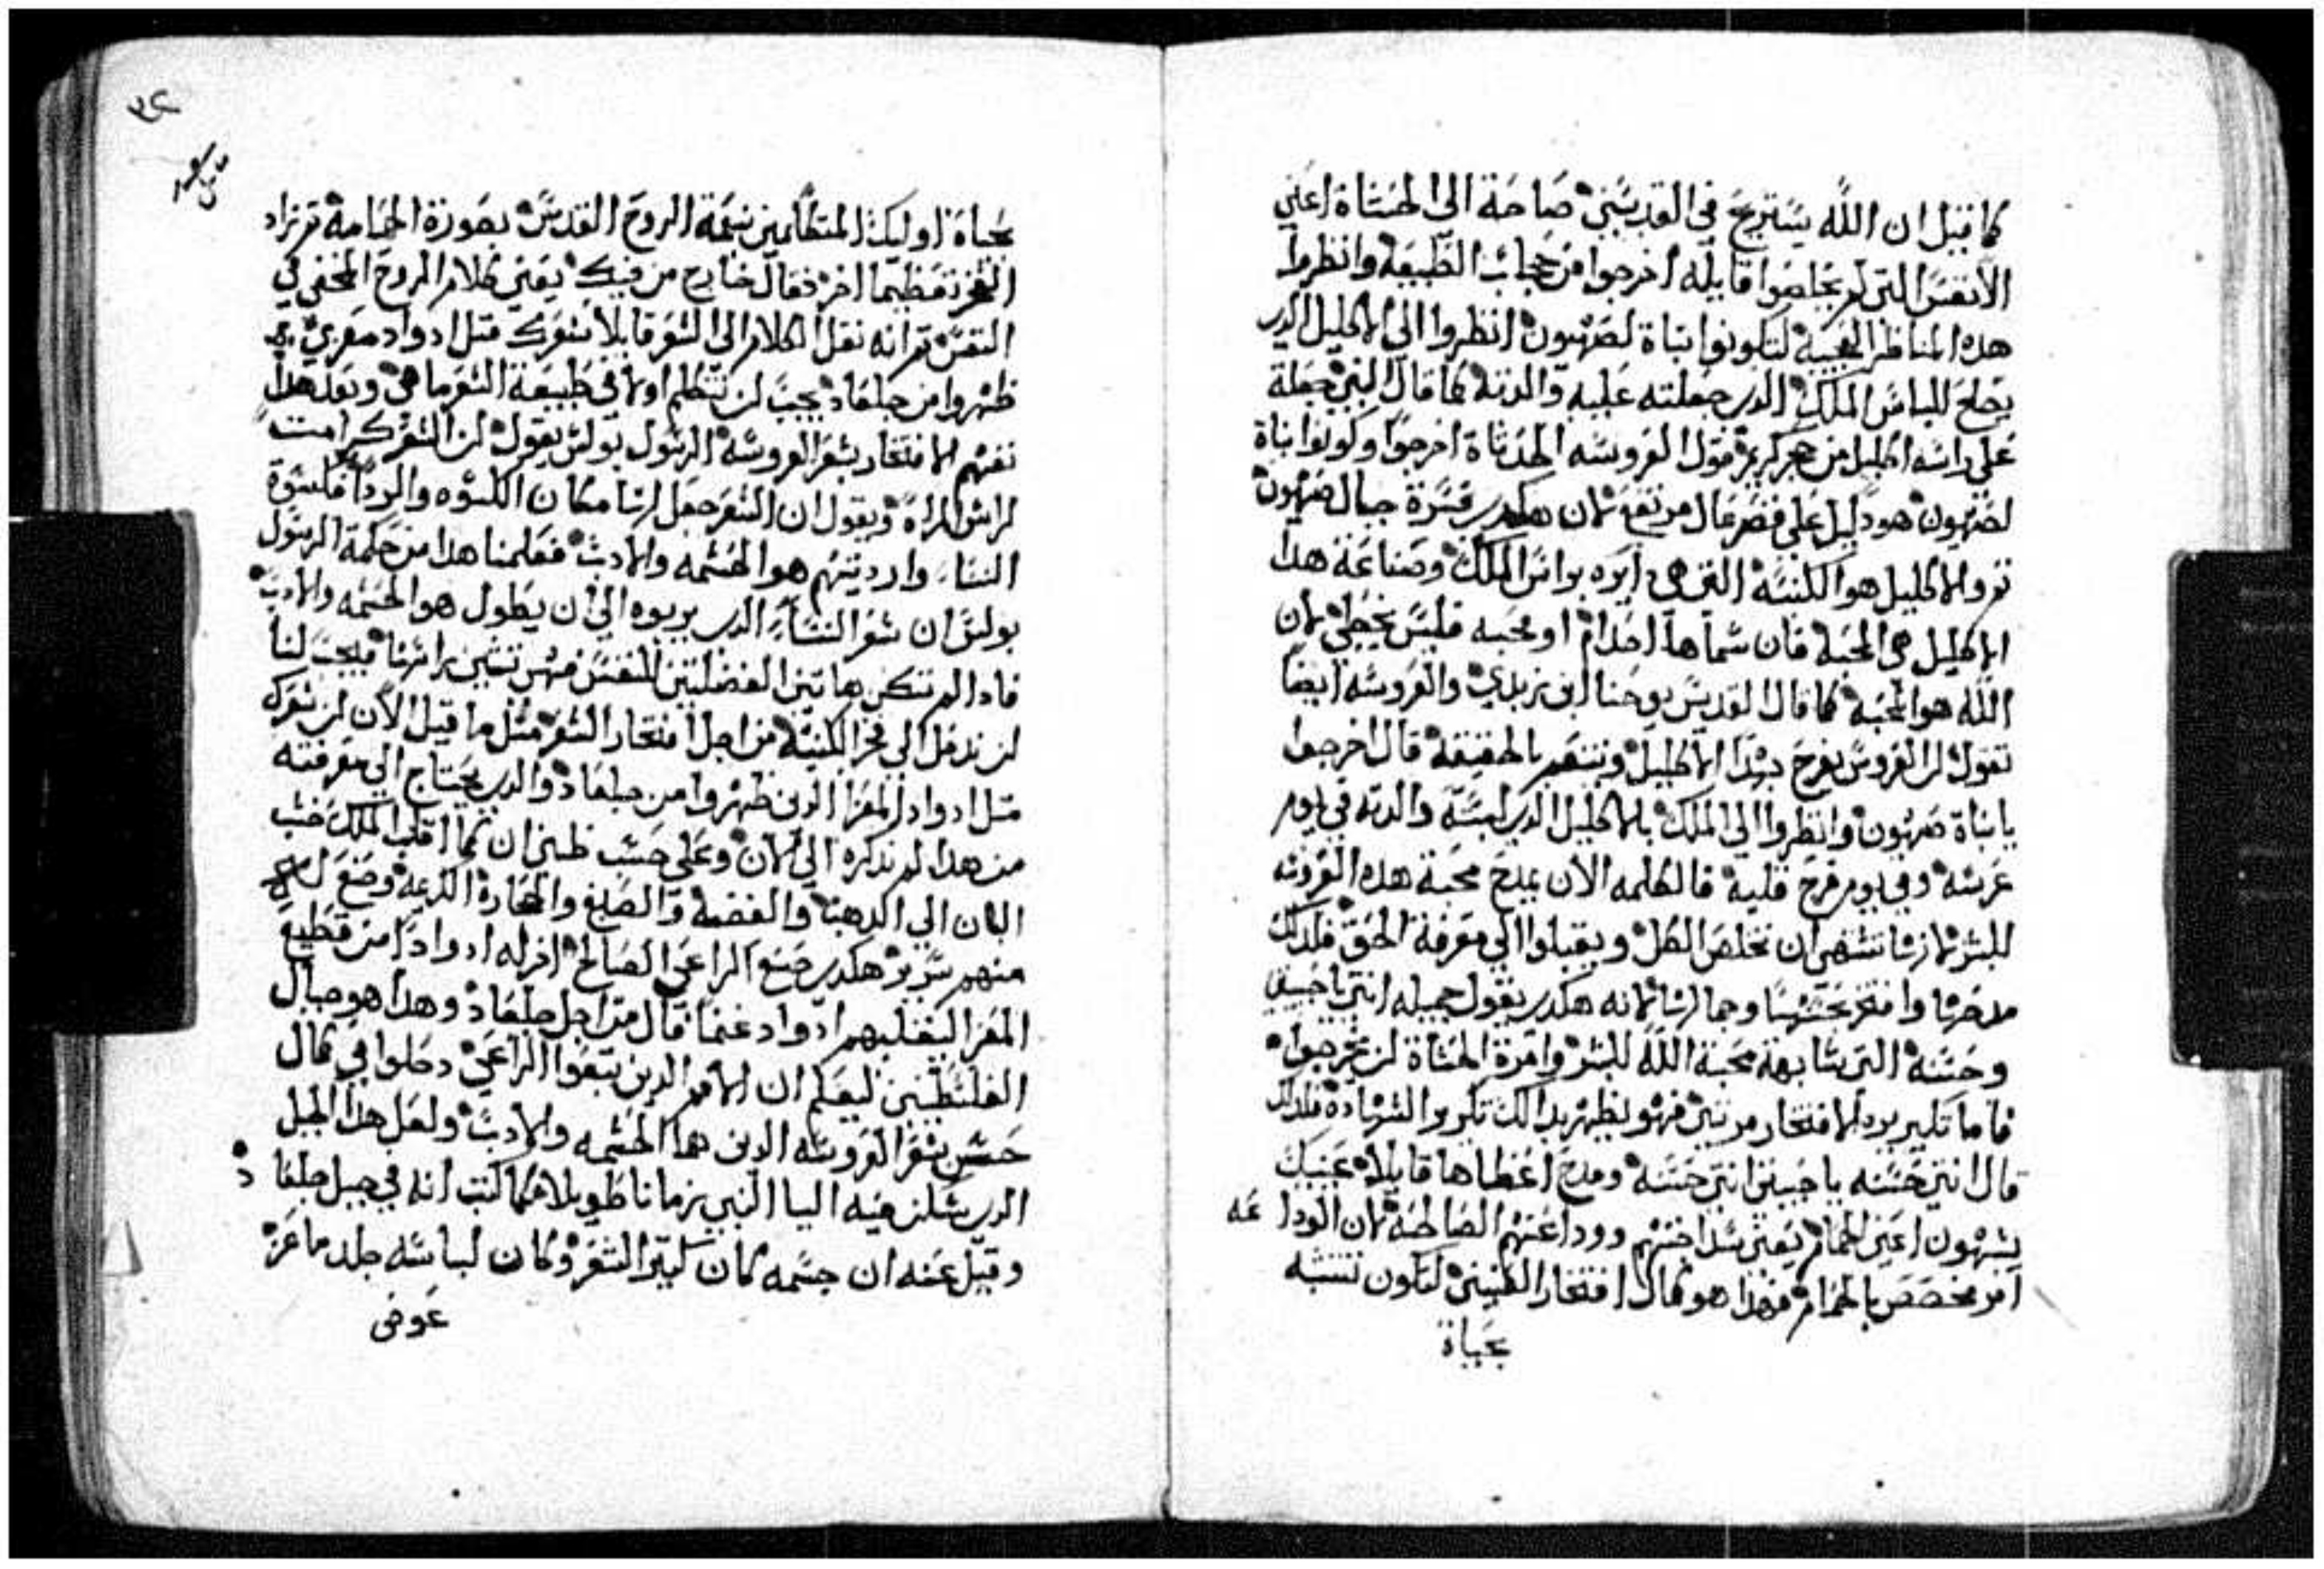 كما قيل ان الله يستريح في القديسين صاحة الي الحتاة اعني
الانفس التي لم يخلصوا قايله اخرجوا من حجاب الطبيعة وانظروا
هده المناظر العجيبه لتكونوا بناة لصهيون انظروا الي الاكليل الدي
يصلح للباس الملك الدي جعلته عليه والدته كما قال النبي جعلة
علي راسه اكليل من حجر كريم قول العروسه الحدتاة اخرجوا وكونوا بناة
لصهيون هو دليل علي قصر عال مرتفع لان هكدي جبال صهيون
تم والاكليل هو الكنيسه التي هي دايره براس الملك وصناعة هدا
الاكليل هي المحبه فان سماها احدا او محبه فليس يخطي لان
الله هو المحبه كما قال القديس يوحنا ابن زبدي والعروسه ايضا
تقول ان العروس يفرح بهدا الاكليل ويتنعم بالحقيقة قال اخرجوا
يا بناة صهيون وانظروا الي الملك بالاكليل الدي لبسته والدته في يوم
عرسه وفي يوم فرح قلبه فالكلمه الان يمدح محبة هده العروسه
للبشر لانها تشتهي ان تخلص الكل ويقبلوا الي معرفة الحق فلدلك
مدحها وافتخر بحسنها وجمالها لانه هكدي يقول جميله انتي يا حبيبتي
وحسنه التي تشابهة محبة الله للبشر وامرة الحتاة ان يخرجوا
فاما تكرير الافتخار مرتين فهو يظهر بدالك تكرير الشهادة فلدلك
قال انتي حسنه يا حبيبتي انتي حسنه ومدح اعضاها قايلا عينيك
يشبهون اعين الحمام يعني سداجتهم ووداعتهم الصالحه لان الوداعه
امر مخصص بالحمام فهدا هو كمال افتخار العينين لتكون تتشبه
بحياة
٣٤
بحياة اوليك المتكلمين نعمة الروح القدس بصورة الحمامة ثم زاد
الفخر تعظيما اخر فقال خارج من فيك يعني كلام الروح المخفي في
النفس ثم انه نقل الكلام الي الشعر قايلا شعرك متل ادواد معزي
ظهروا من جلعاد يجب ان نتكلم اولا في طبيعة الشعر ما هي وبعد هدا
نفهم الافتخار بشعر العروسه الرسول بولس يقول ان الشعر كرامت
لراس المراة ويقول ان الشعر جعل لها مكان الكسوه والرداء فكسوة
النساء وارديتهم هو الحشمه والادب فعلمنا هدا من حكمة الرسول
بولس ان شعر النساء الدي يربوه الي ان يطول هو الحشمه والادب
فادا لم تكن هاتين الفضيلتين للنفس فهي تشين براسها فيجب لنا
ان ندخل الي فخر الكنيسه من اجل افتخار الشعر متل ما قيل الان ان شعرك
متل ادواد المعز الدين ظهروا من جلعاد والدي يحتاج الي معرفته
من هدا لم ندكره الي الان وعلي حسب ظني ان كما اقلب الملك خشب
البان الي الدهب والفضه والصبغ والحجارة الكريمة وصنع
منهم سرير هكدي صنع الراعي الصالح ادا اخد له ادوادا من قطيع
المعز ليقلبهم ادواد غنما قال من اجل جلعاد وهدا هو جبال
الفلسطينيين ليعلم ان الامم الدين تبعوا الراعي دخلوا في كمال
حسن شعر العروسه الدين هما الحشمه والادب ولعل هدا الجبل
الدي سكن فيه اليا النبي زمانا طويلا فكما كتب انه في جبل جلعاد
وقيل عنه ان جسمه كان كتير الشعر وكان لباسه جلد ماعز
عوض